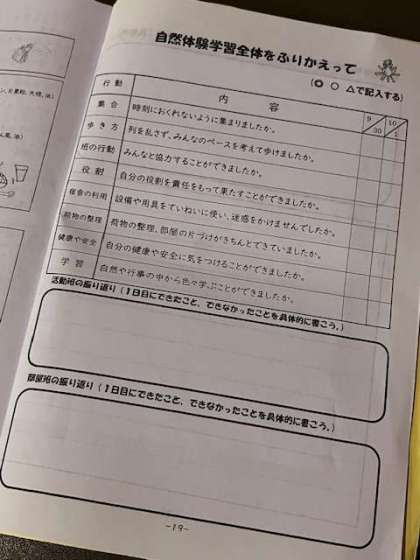 自然体験学習全体をふりかえって
(◎ ○ △で記入する)
行動 内容 9/30 10/1
集合 時刻におくれないように集まりましたか。
歩き方 列を乱さず、みんなのペースを考えて歩けましたか。
班の行動 みんなと協力することができましたか。
役割 自分の役割を責任をもって果たすことができましたか。
宿舎の利用 設備や用具をていねいに使い、迷惑をかけませんでしたか。
荷物の整理 荷物の整理、部屋の片づけがきちんとできていましたか。
健康や安全 自分の健康や安全に気をつけることができましたか。
学習 自然や行事の中から色々学ぶことができましたか。
活動班の振り返り(1日目にできたこと、できなかったことを具体的に書こう。)
部屋班の振り返り(1日目にできたこと、できなかったことを具体的に書こう。)
-19-